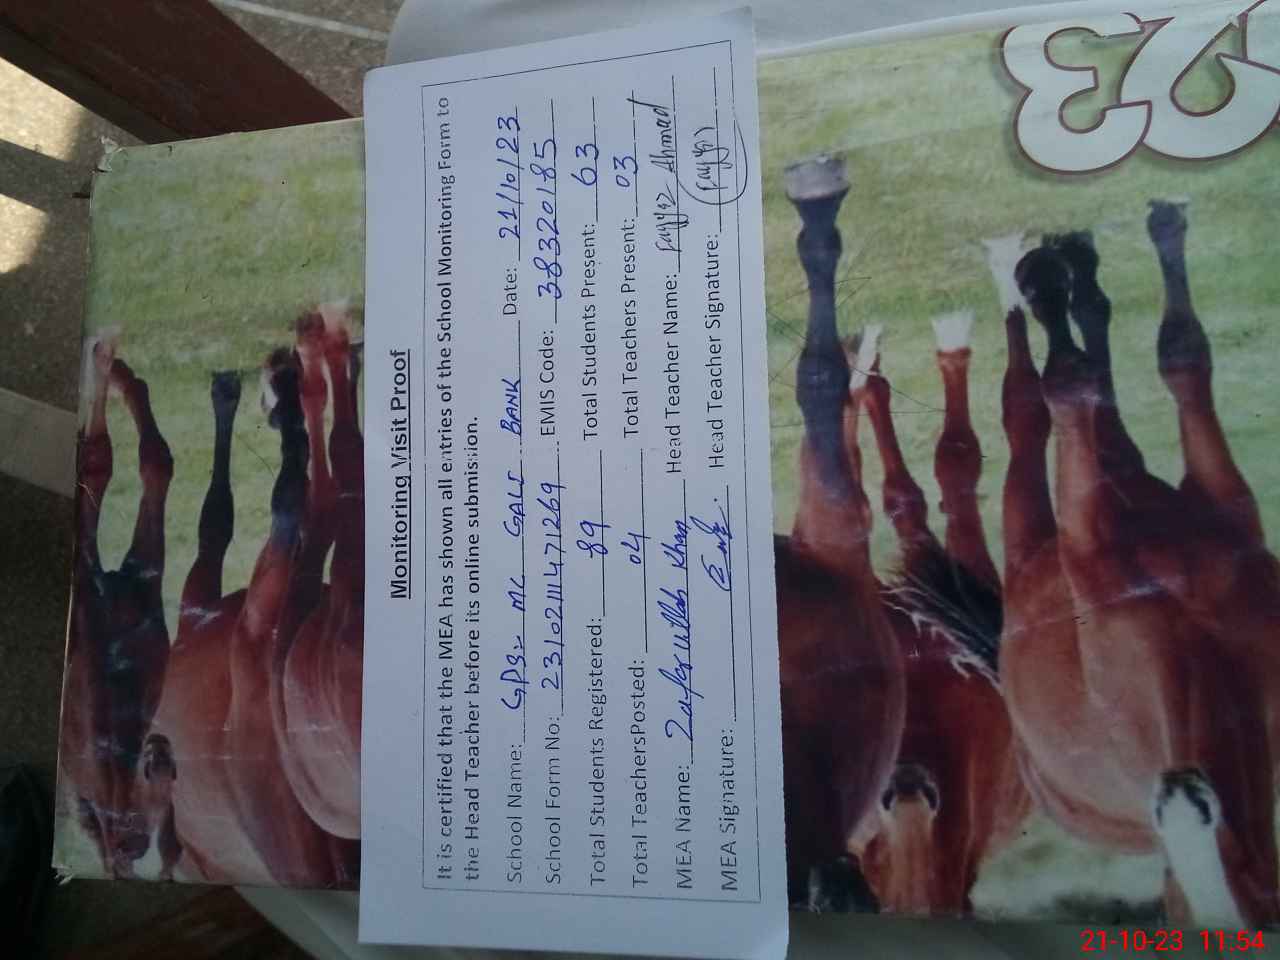 Monitoring Visit Proof
It is certified that the MEA has shown all entries of the School Monitoring Form to
the Head Teacher before its online submission.
School Name: GPS:- MC GALI BANK Date: 21/10/23
School Form No: 23102111471269 EMIS Code: 38320185
Total Students Registered: 89 Total Students Present: 63
Total TeachersPosted: 04 Total Teachers Present: 03
MEA Name: Zafar ullah Khan Head Teacher Name: Fayyaz Ahmad
MEA Signature: Head Teacher Signature: Fayyaz
23
21-10-23 11:54